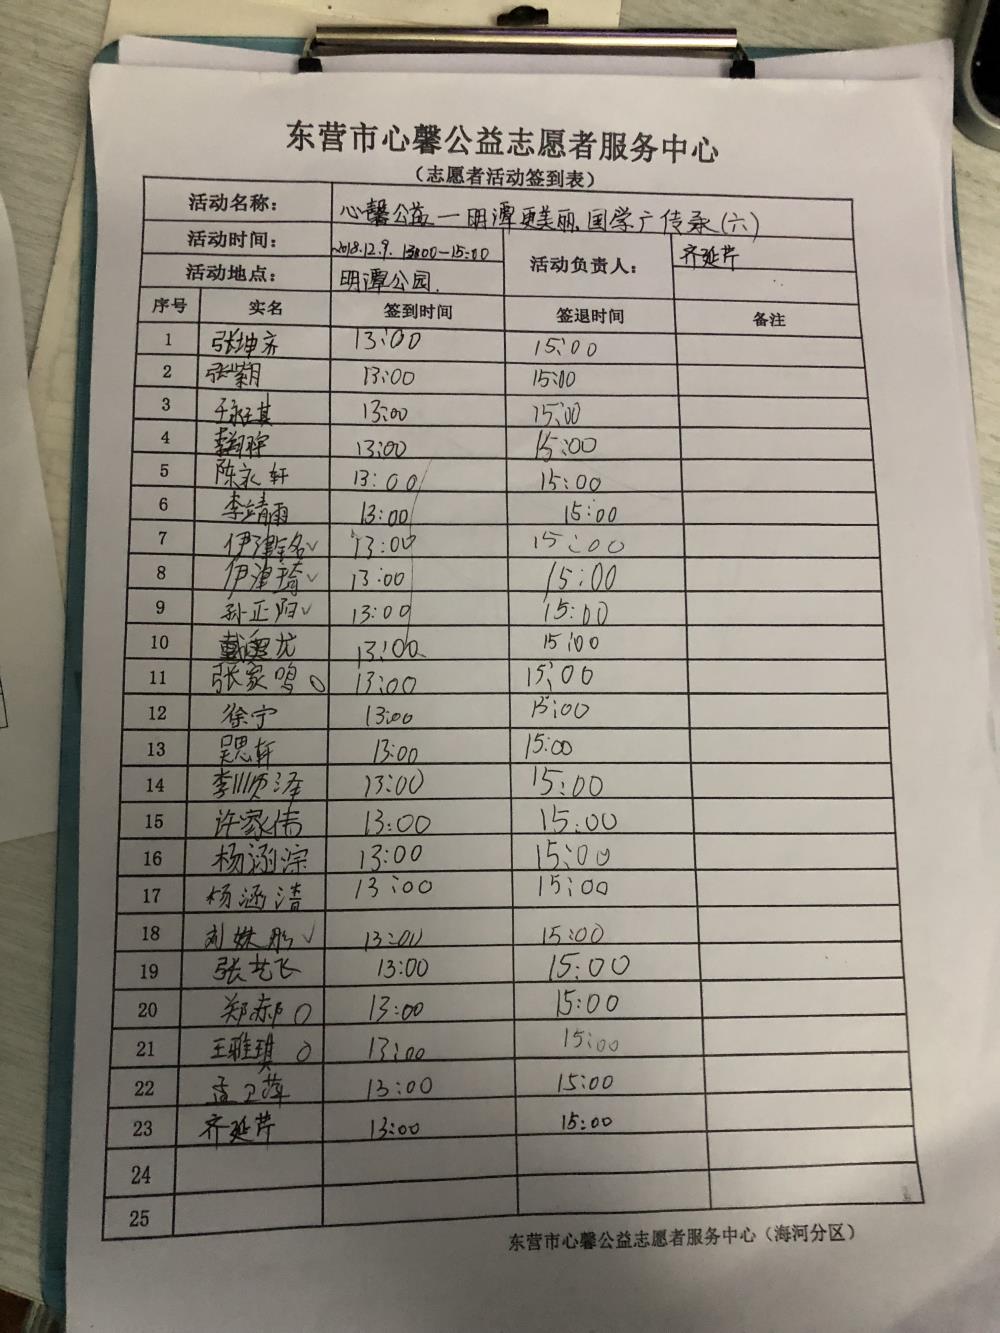 东营市心馨公益志愿者服务中心
(志愿者活动签到表)
活动名称: 心馨公益—明潭更美丽、国学广传承(六)
活动时间: 2018.12.9. 13:00-15:00 活动负责人: 齐延芹
活动地点: 明潭公园.
序号 实名 签到时间 签退时间 备注
1 张坤齐 13:00 15:00
2 张紫月 13:00 15:00
3 13:00 15:00
4 13:00 15:00
5 陈永轩 13:00 15:00
6 李靖雨 13:00 15:00
7 伊津名√ 13:00 15:00
8 伊津琦√ 13:00 15:00
9 孙正阳√ 13:00 15:00
10 戴龙 13:00 15:00
11 张家鸣○ 13:00 15:00
12 徐宁 13:00 15:00
13 吴思轩 13:00 15:00
14 李顺泽 13:00 15:00
15 许家伟 13:00 15:00
16 杨涵淙 13:00 15:00
17 杨涵清 13:00 15:00
18 刘姝彤√ 13:00 15:00
19 张艺飞 13:00 15:00
20 郑郝○ 13:00 15:00
21 王雅琪○ 13:00 15:00
22 孟卫萍 13:00 15:00
23 齐延芹 13:00 15:00
24
25
东营市心馨公益志愿者服务中心(海河分区)